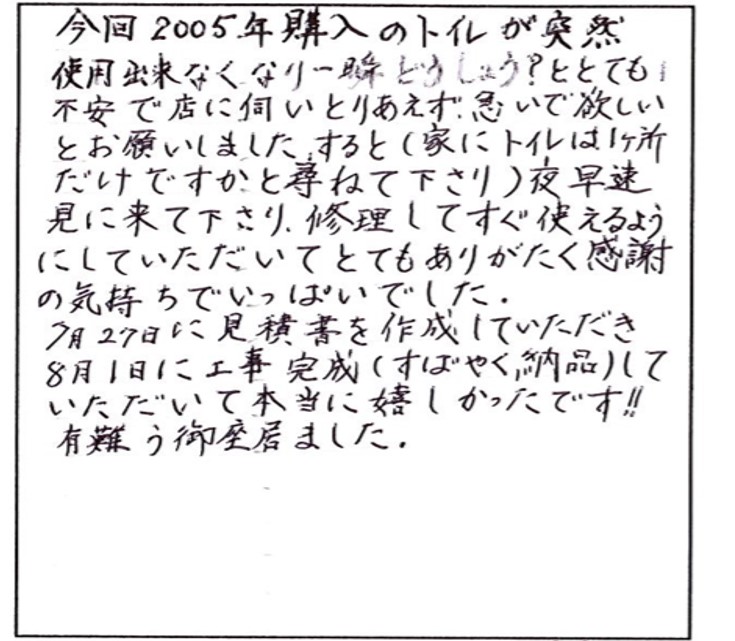 今回2005年購入のトイレが突然
使用出来なくなり一瞬どうしよう?ととても
不安で店に伺いとりあえず、急いで欲しい
とお願いしました、すると(家にトイレは1ヶ所
だけですかと尋ねて下さり)夜早速
見に来て下さり、修理してすぐ使えるよう
にしていただいてとてもありがたく感謝
の気持ちでいっぱいでした.
7月27日に見積書を作成していただき
8月1日に工事完成(すばやく納品)して
いただいて本当に嬉しかったです!!
有難う御座居ました.